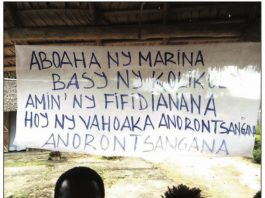 ABOAHA NY MARINA
BASY NY KOLIKOLI
AMIN' NY FIFIDIANANA
HOY NY VAHOAKA ANORONTSANGANA
ANORONTSANGANA